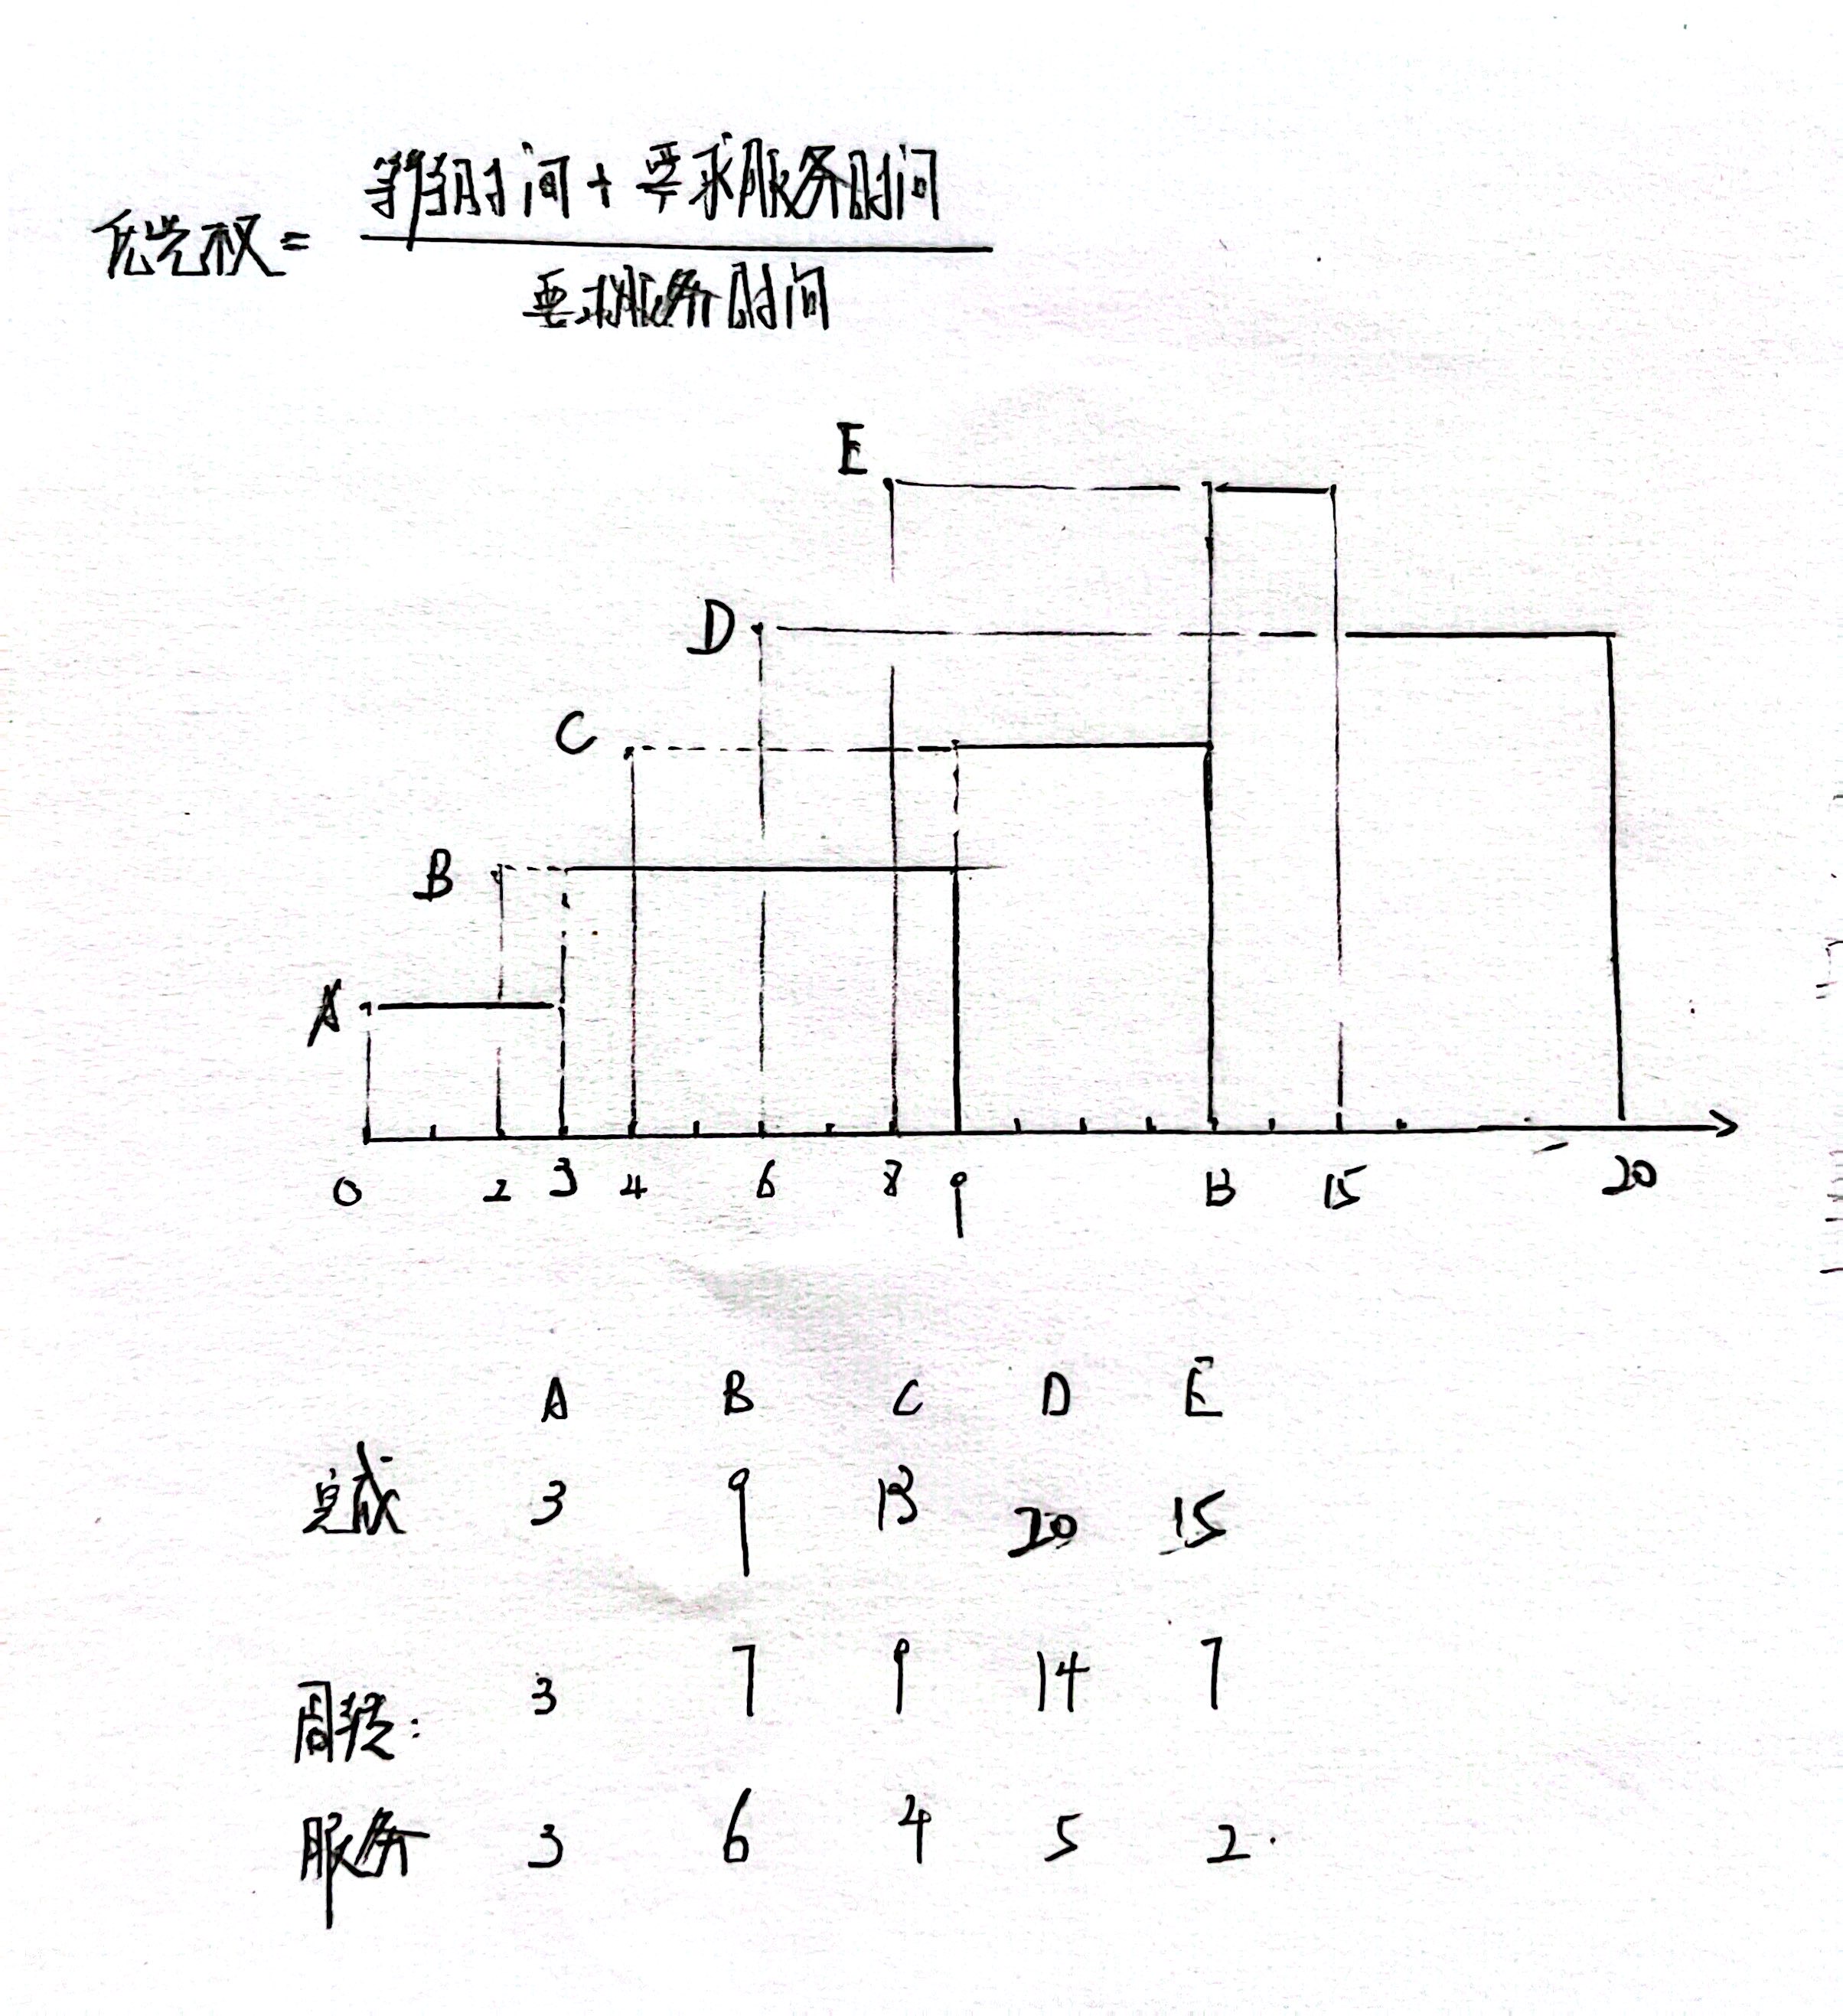 等待时间+要求服务时间
优先权=
要求服务时间
E
D
C
B
A
0 2 3 4 6 8 9 13 15 20
A B C D E
完成 3 9 13 20 15
周转: 3 7 9 14 7
服务 3 6 4 5 2.